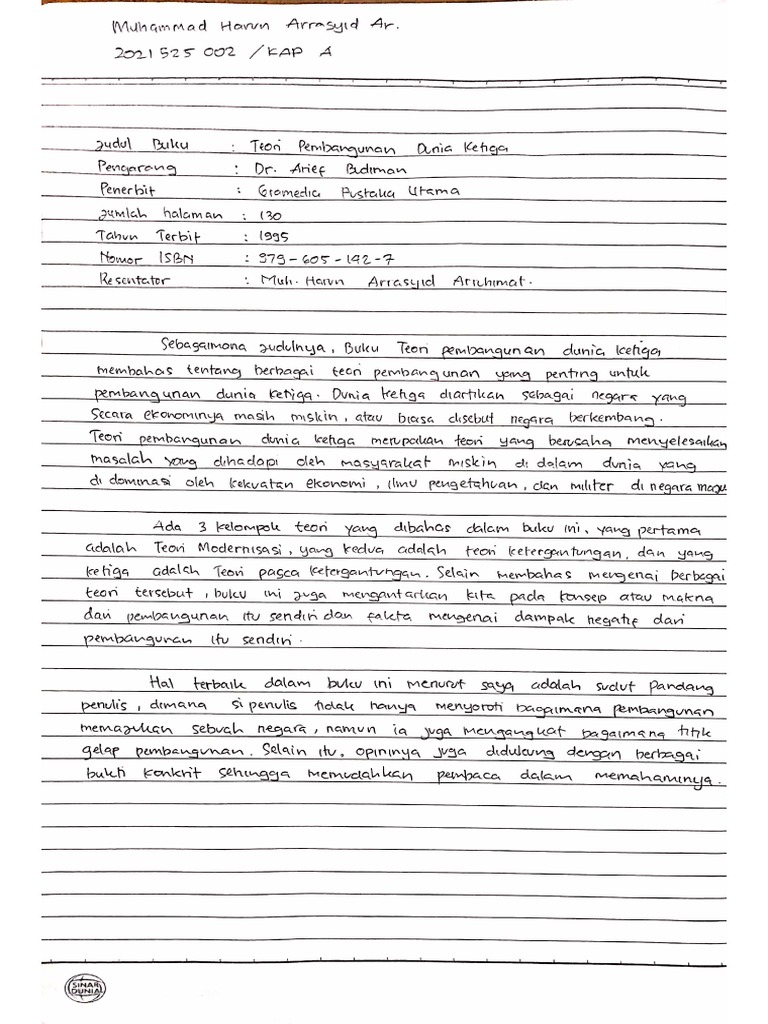 Muhammad Harun Arrasyid Ar.
2021525002 / KAP A
Judul Buku : Teori Pembangunan Dunia Ketiga
Pengarang : Dr. Arief Budiman
Penerbit : Gramedia Pustaka Utama
Jumlah halaman : 130
Tahun Terbit : 1995
Nomor ISBN : 979-605-192-7
Resentator : Muh. Harun Arrasyid Arruhimat.
Sebagaimana judulnya, Buku Teori pembangunan dunia ketiga
membahas tentang berbagai teori pembangunan yang penting untuk
pembangunan dunia ketiga. Dunia ketiga diartikan sebagai negara yang
Secara ekonominya masih miskin, atau biasa disebut negara berkembang.
Teori pembangunan dunia ketiga merupakan teori yang berusaha menyelesaikan
masalah yang dihadapi oleh masyarakat miskin di dalam dunia yang
di dominasi oleh kekuatan ekonomi, ilmu pengetahuan, dan militer di negara maju
Ada 3 kelompok teori yang dibahas dalam buku ini, yang pertama
adalah Teori Modernisasi, yang kedua adalah teori ketergantungan, dan yang
ketiga adalah Teori pasca ketergantungan. Selain membahas mengenai berbagai
teori tersebut, buku ini juga mengantarkan kita pada konsep atau makna
dari pembangunan itu sendiri dan fakta mengenai dampak negatif dari
pembangunan itu sendiri.
Hal terbaik dalam buku ini menurut saya adalah sudut Pandang
penulis, dimana si penulis tidak hanya menyoroti bagaimana pembangunan
memajukan sebuah negara, namun ia juga mengangkat bagaimana titik
gelap pembangunan. Selain itu, opininya juga didukung dengan berbagai
bukti konkrit sehingga memudahkan pembaca dalam memahaminya.
SINAR
DUNIA